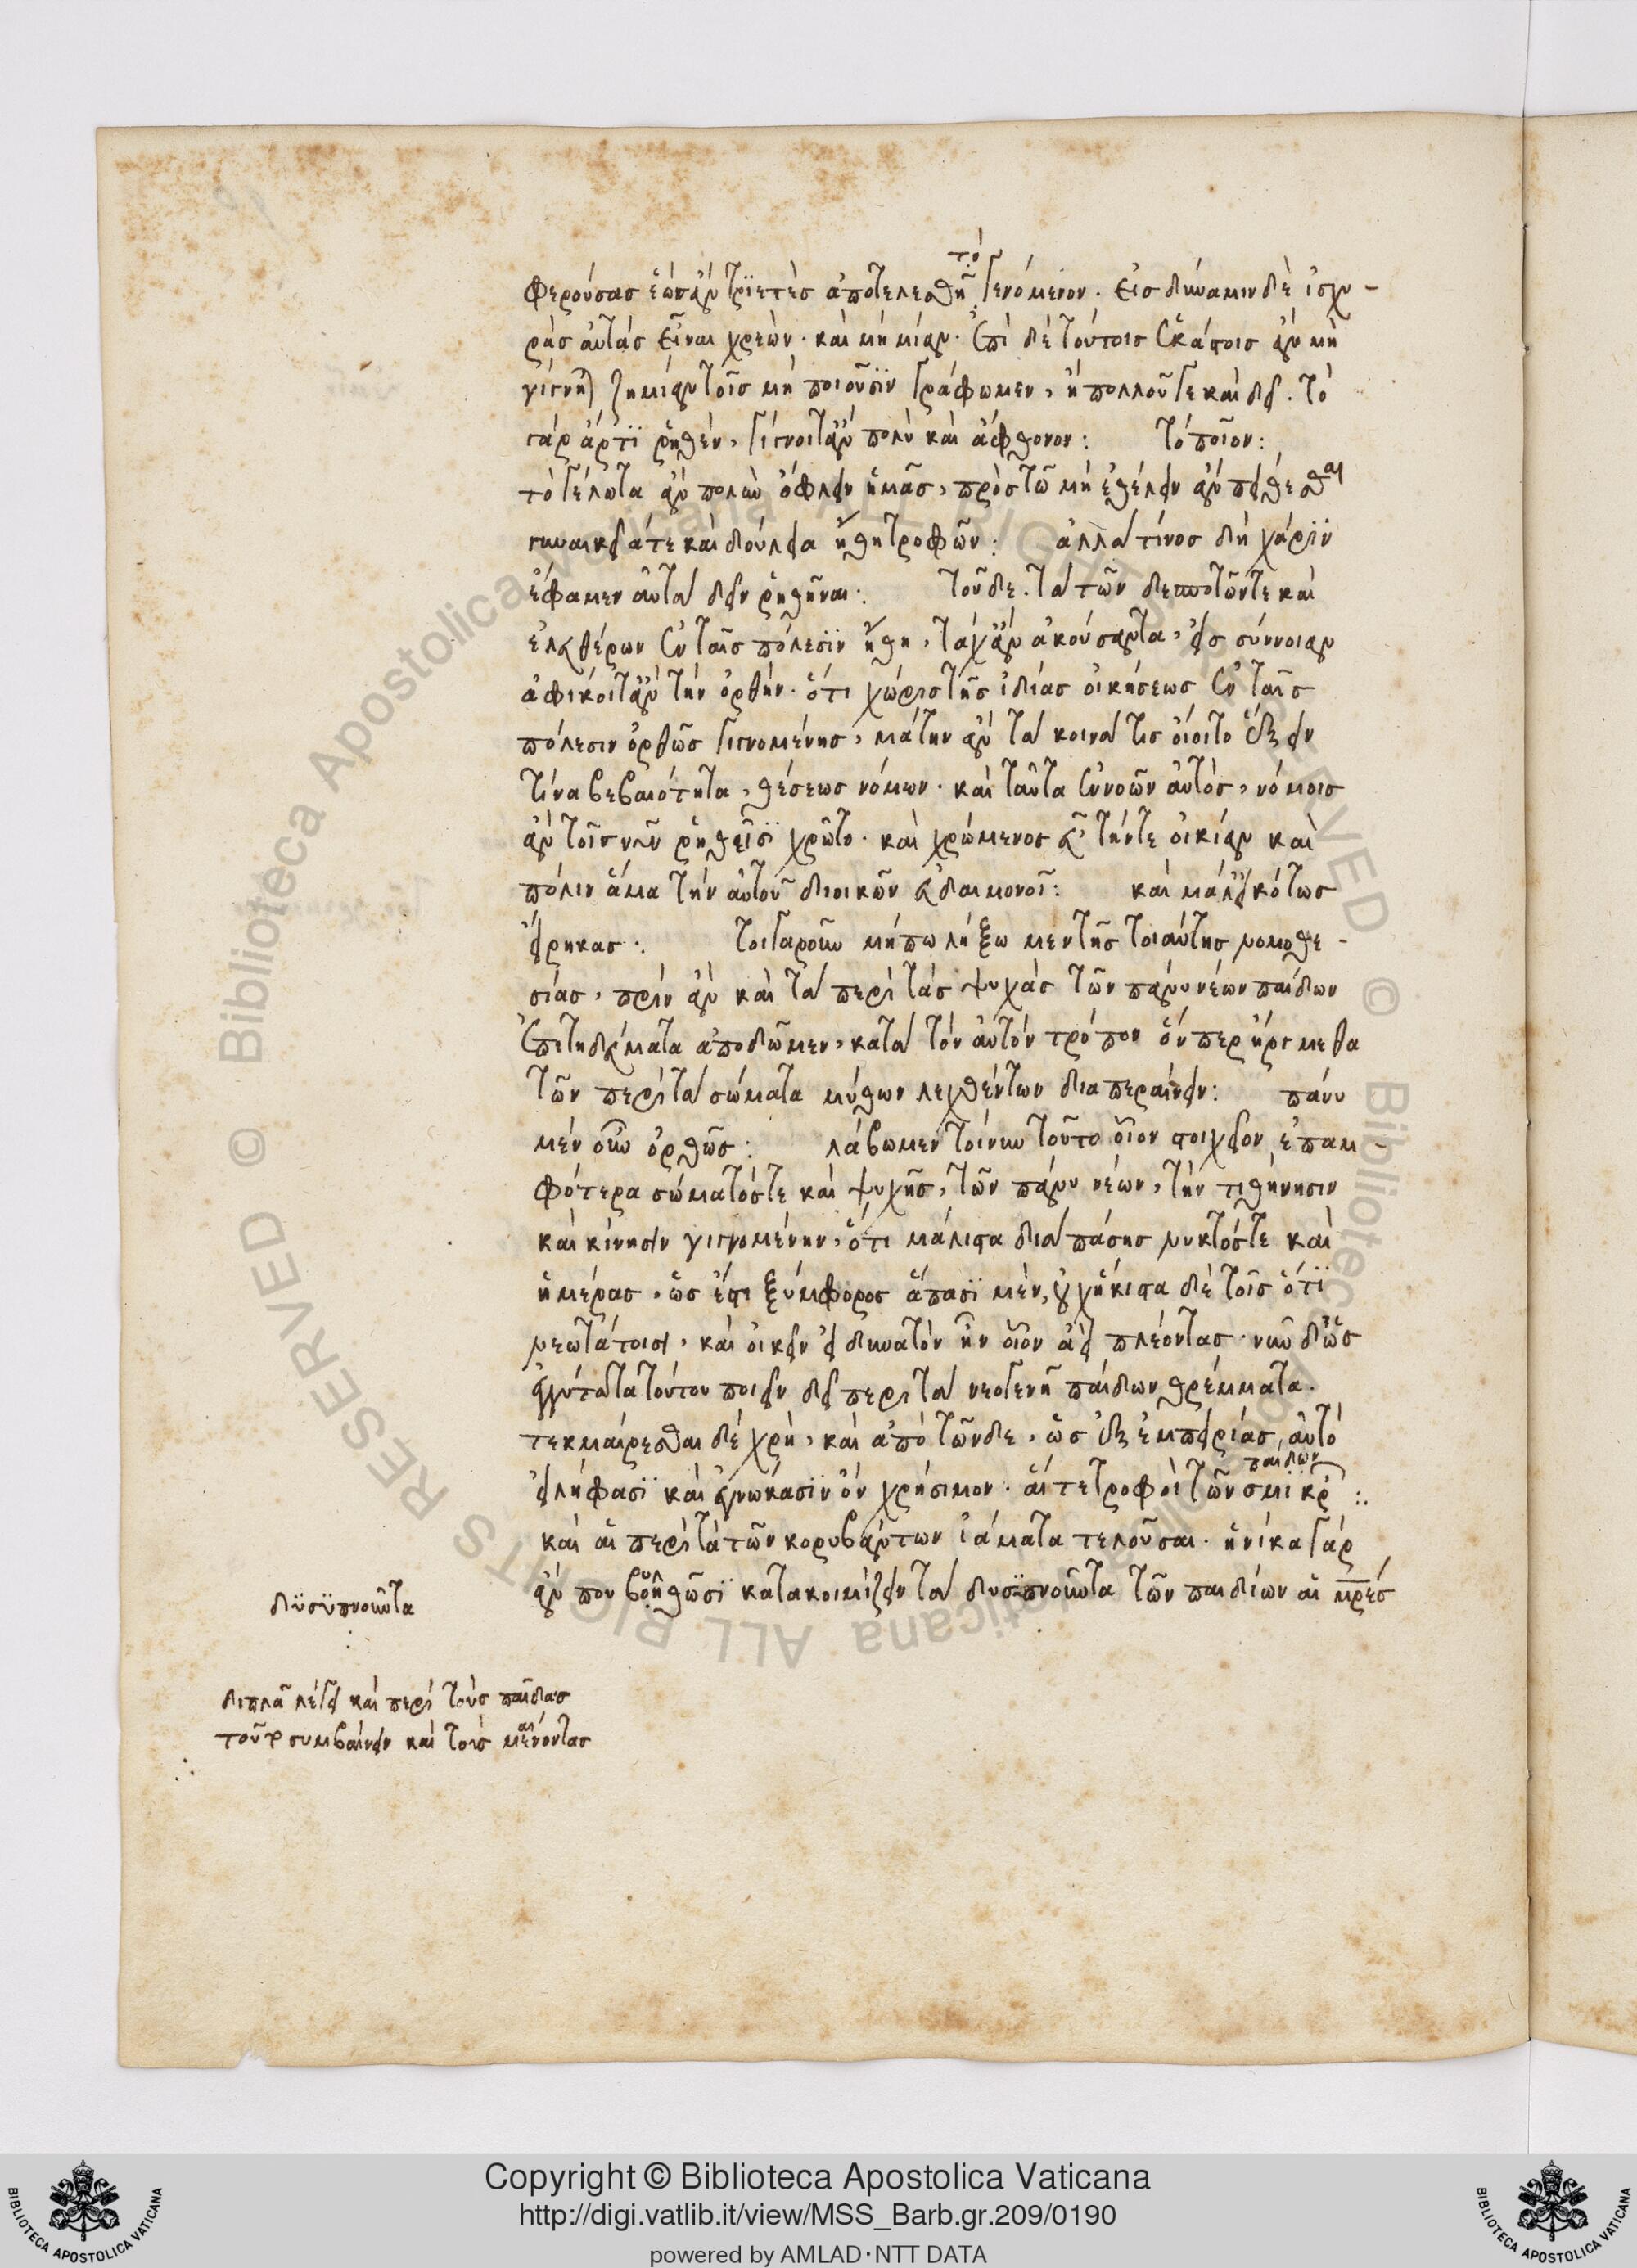 τὸ
φερούσας ἕως ἂν τριετὲς ἀποτελεσθῇ γενόμενον. εἰς δύναμιν δὲ ἰσχυ-
ρὰς αὐτὰς εἶναι χρεών. καὶ μὴ μίαν. ἐπὶ δὲ τούτοις ἑκάστοις ἂν μὴ
γίγνηται ζημίαν τοῖς μὴ ποιοῦσϊν γράφωμεν, ἢ πολλοῦ γε καὶ δεῖ. τὸ
γὰρ ἄρτϊ ῥηθὲν, γίγνοιτ' ἂν πολὺ καὶ ἄφθονον: τὸ ποῖον:
τὸ γέλωτα ἂν πολὺν ὄφλειν ἡμᾶς, πρὸς τῶ μὴ ἐθέλειν ἂν πείθεσθαι
γυναικεῖά τε καὶ δούλεια ἤθη τροφῶν: ἀλλὰ τίνος δὴ χάρϊν
ἔφαμεν αὐτὰ δεῖν ῥηθῆναι: τοῦδε. τὰ τῶν δεσποτῶν τε καὶ
ἐλευθέρων ἐν ταῖς πόλεσϊν ἤθη, τάχ' ἂν ἀκούσαντα, εἰς σύννοιαν
ἀφίκοιτ' ἂν τὴν ὀρθήν. ὅτι χωρὶς τῆς ἰδίας οἰκήσεως ἐν ταῖς
πόλεσιν ὀρθῶς γιγνομένης, μάτην ἂν τὰ κοινά τις οἴοιτο ἕξειν
τινὰ βεβαιότητα, θέσεως νόμων. καὶ ταῦτα ἐννοῶν αὐτὸς, νόμοις
ἂν τοῖς νῦν ῥηθεῖσϊ χρῶτο. καὶ χρώμενος εὖ τήν τε οἰκίαν καὶ
πόλιν ἅμα τὴν αὐτοῦ διοικῶν εὐδαιμονοῖ: καὶ μάλ' εἰκότως
εἴρηκας: τοιγαροῦν μήπω λήξωμεν τῆς τοιαύτης νομοθε-
σίας, πρὶν ἂν καὶ τὰ περὶ τὰς ψυχὰς τῶν πάνυ νέων παίδων
ἐπιτηδεύματα ἀποδῶμεν, κατὰ τὸν αὐτὸν τρόπον ὅνπερ ἤργμεθα
τῶν περὶ τὰ σώματα μύθων λεχθέντων διαπεραίνειν: πάνυ
μὲν οὖν ὀρθῶς: λάβωμεν τοίνυν τοῦτο οἷον στοιχεῖον ἐπ' ἀμ-
φότερα σώματός τε καὶ ψυχῆς, τῶν πάνυ νέων, τὴν τιθήνησιν
καὶ κίνησιν γιγνομένην, ὅτι μάλιστα διὰ πάσης νυκτός τε καὶ
ἡμέρας, ὡς ἔστι ξύμφορος ἅπασϊ μὲν, οὐχ ἥκιστα δὲ τοῖς ὅτϊ
νεωτάτοισι, καὶ οἰκεῖν εἰ δυνατὸν ἦν οἷον ἀεὶ πλέοντας. νῦν δ' ὡς
ἐγγύτατα τούτου ποιεῖν δεῖ περὶ τὰ νεογενῆ παίδων θρέμματα.
τεκμαίρεσθαι δὲ χρὴ, καὶ ἀπὸ τῶνδε, ὡς ἐξ ἐμπειρίας αὐτὸ
παίδων
εἰλήφασϊ καὶ ἐγνώκασϊν ὂν χρήσιμον. αἵ τε τροφοὶ τῶν σμικρ :.
καὶ αἱ περὶ τὰ τῶν κορυβάντων ἰάματα τελοῦσαι. ἡνίκα γὰρ
ἄν που βουληθῶσϊ κατακοιμίζειν τὰ δυσϋπνοῦντα τῶν παιδίων αἱ μρές
δϋσϋπνοῦντα
διπλᾶ λέγει καὶ περὶ τοὺς παῖδας
τοῦτο συμβαίνειν καὶ τοὺς μαίνοντας